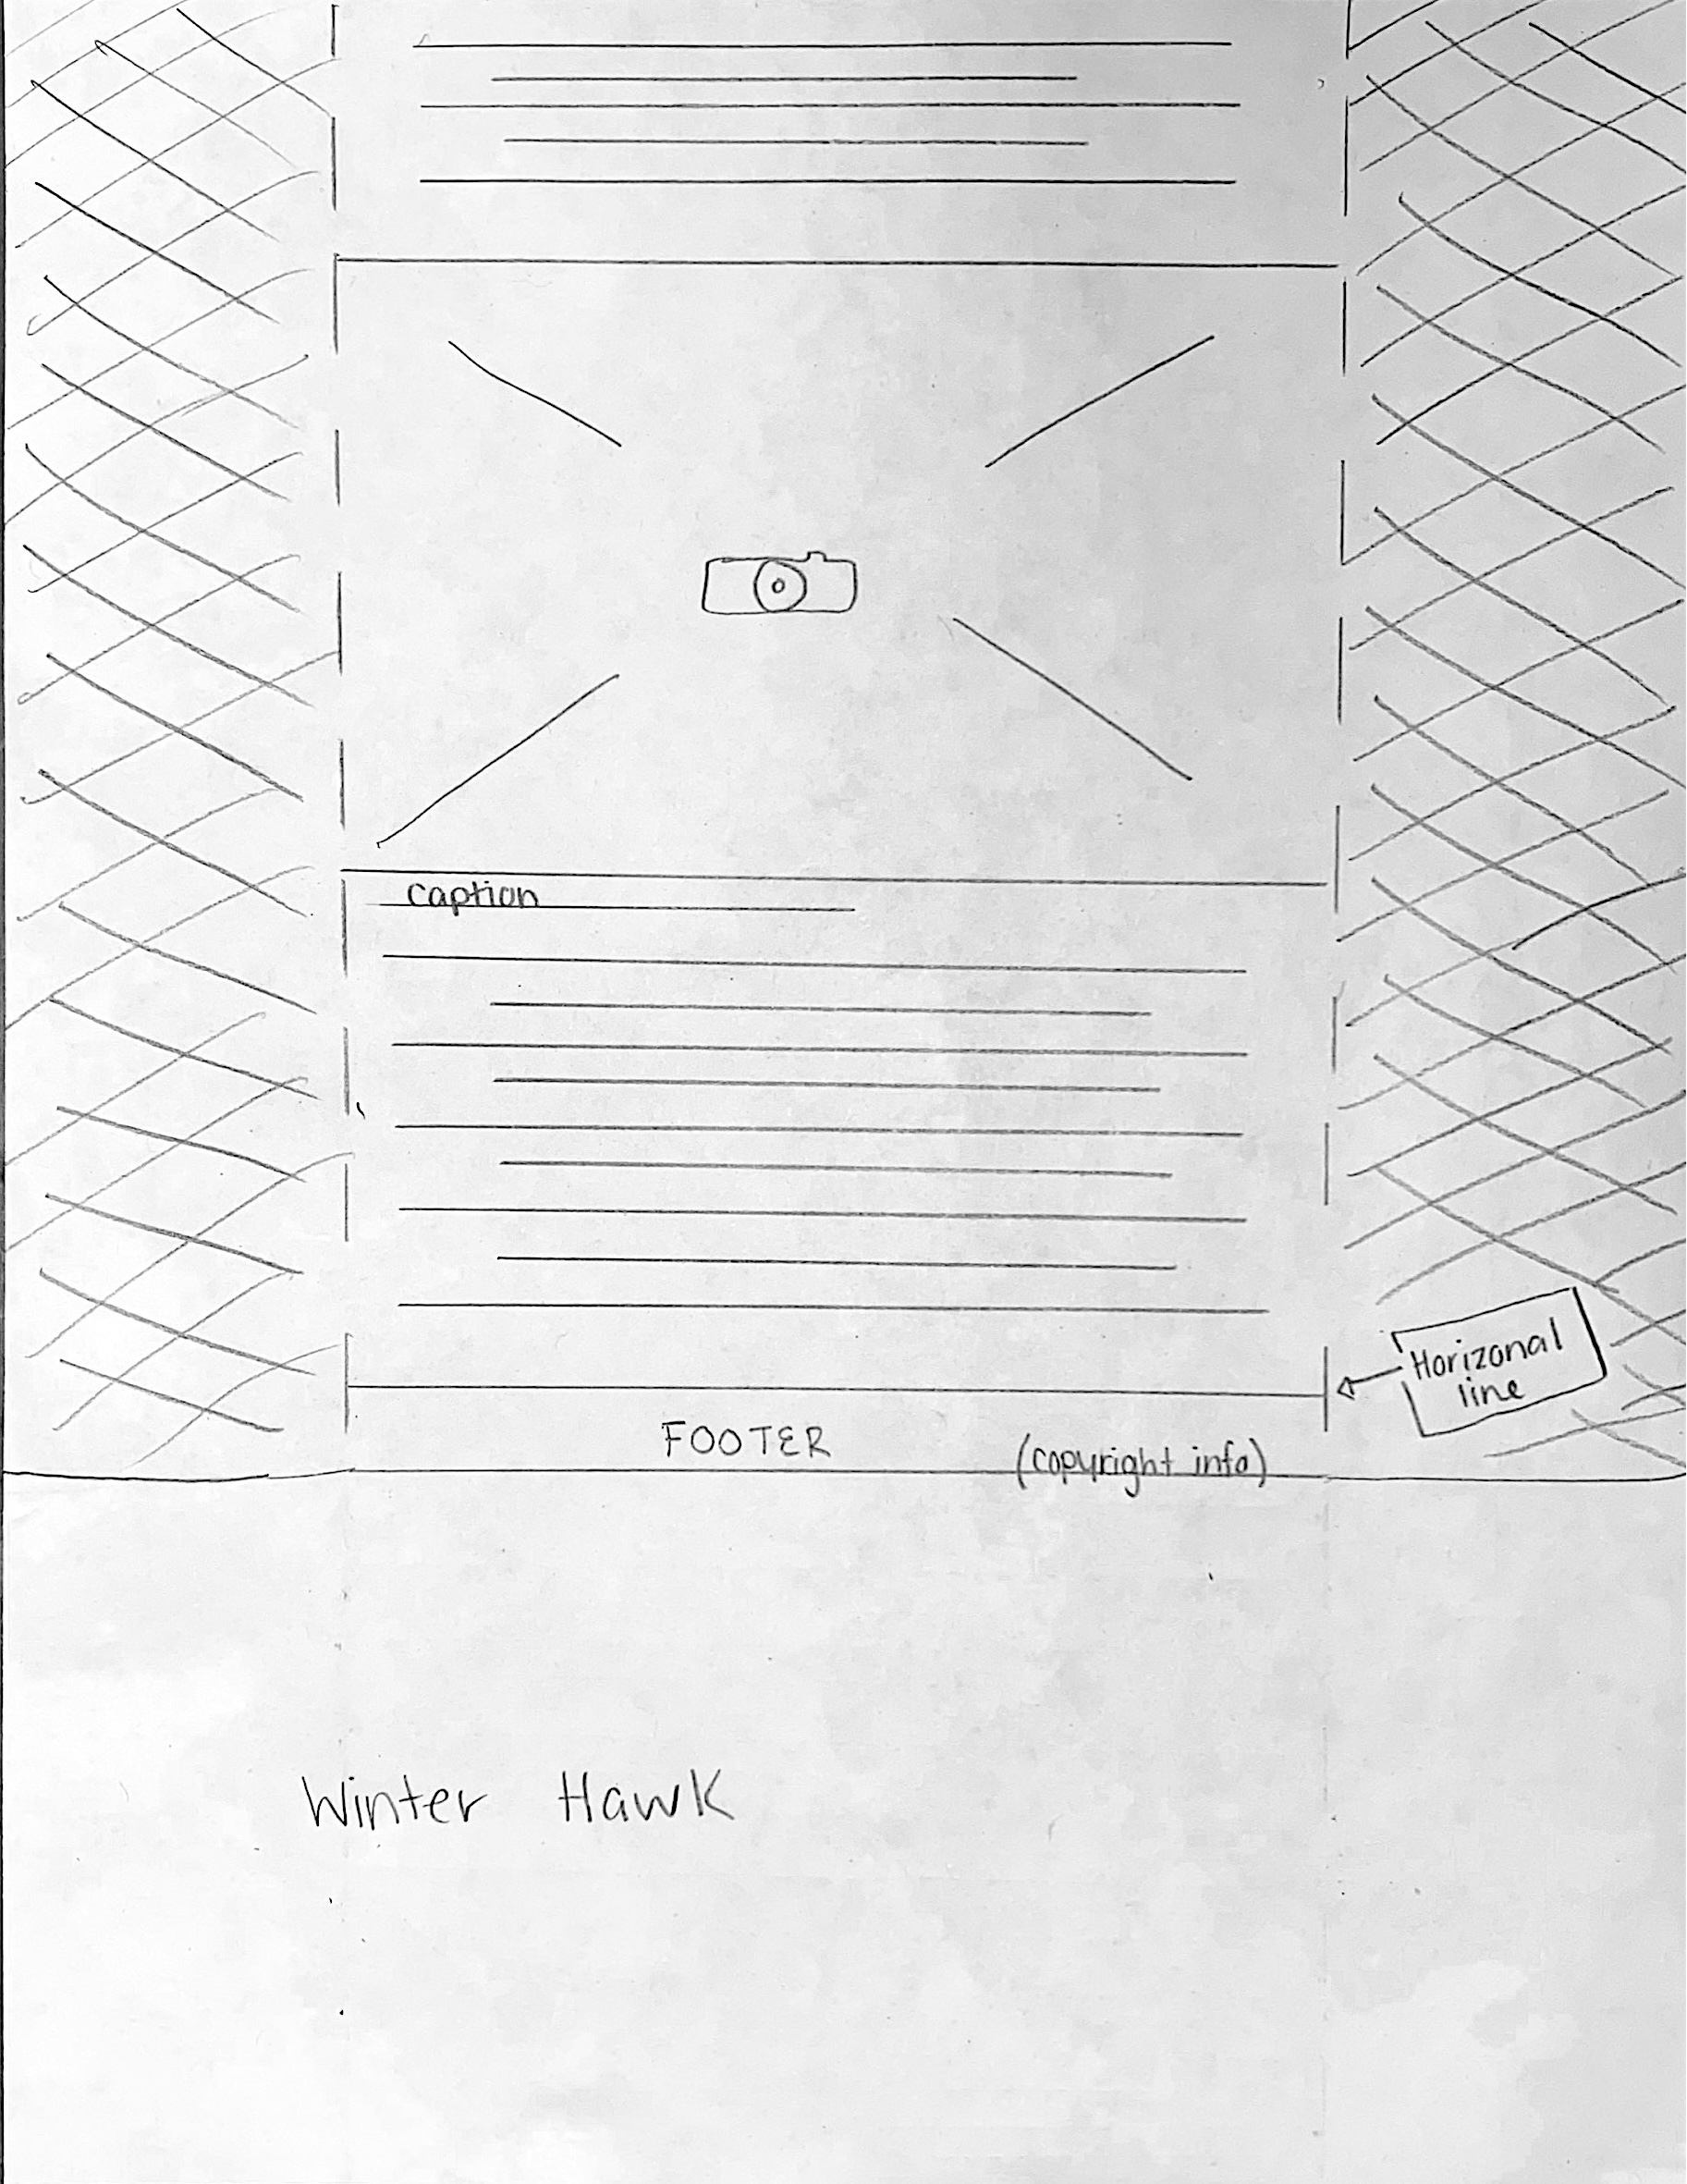 caption
Horizonal
line
FOOTER
(copyright info)
Winter Hawk